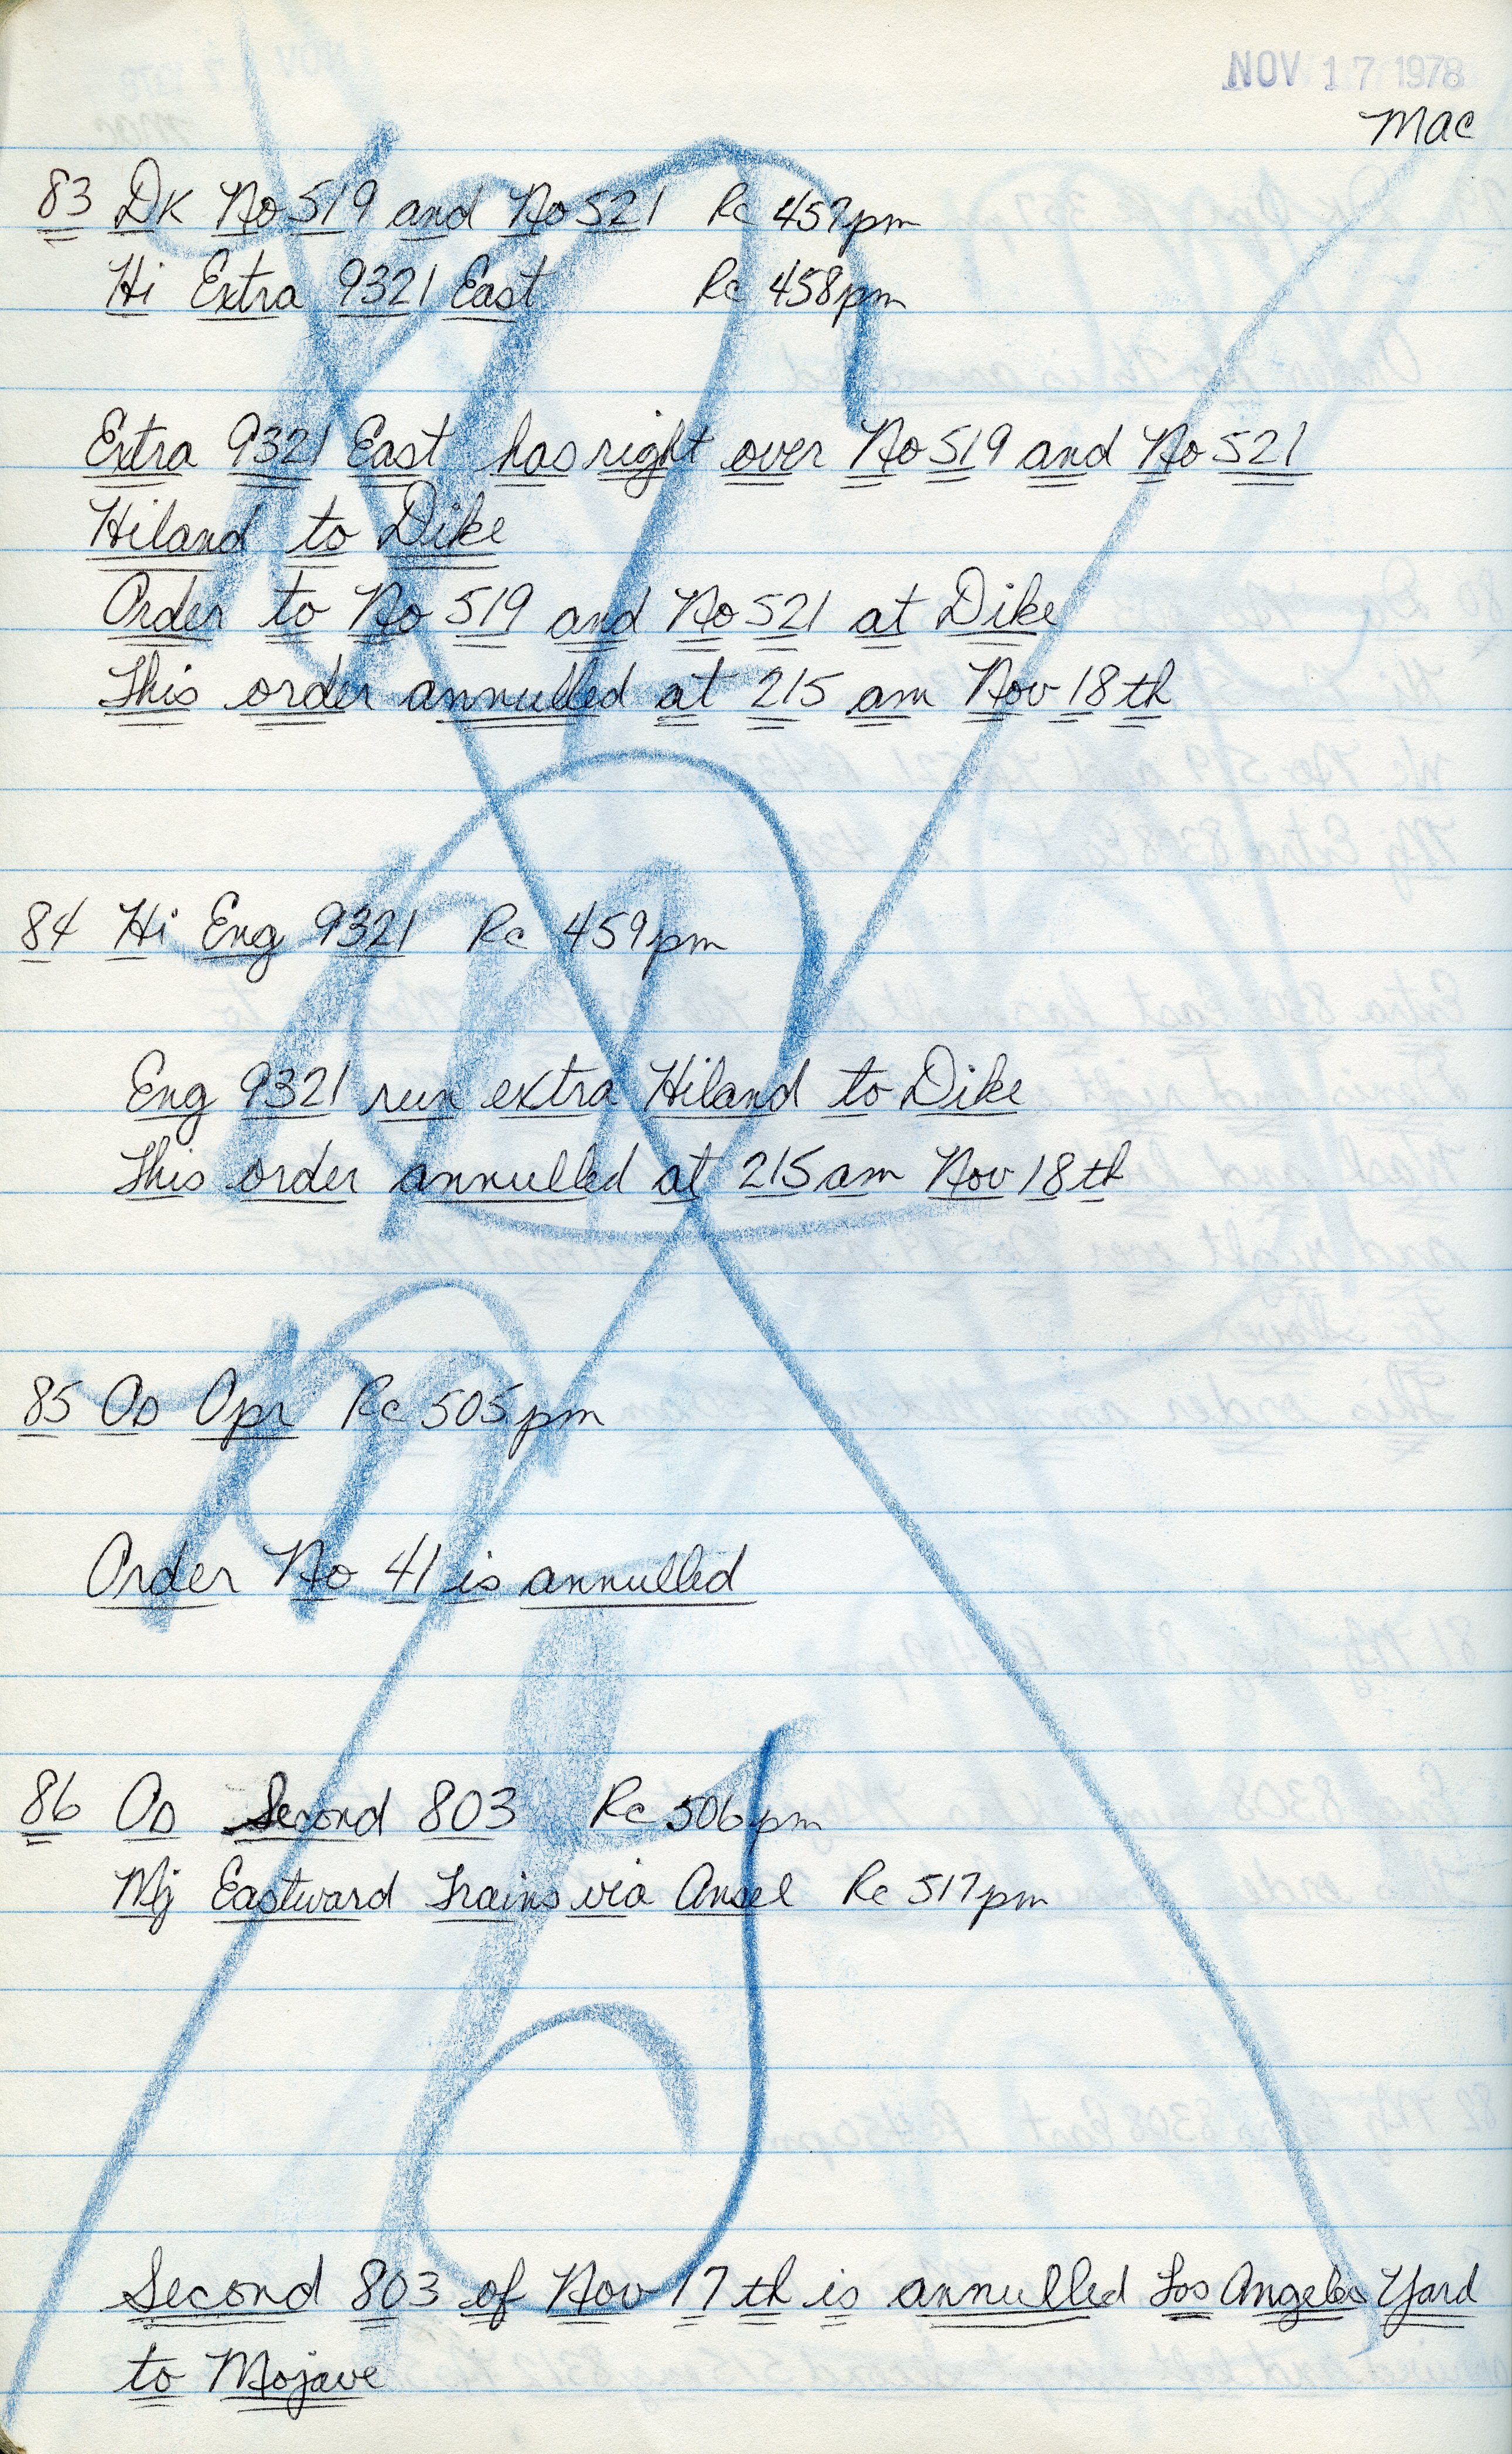 NOV 17 1978
Mac
83 DK No 519 and No 521 Rc 457pm
Hi Extra 9321 East Rc 458pm
Extra 9321 East has right over No 519 and No 521
Hiland to Dike
Order to No 519 and No 521 at Dike
This order annulled at 215 am Nov 18th
84 Hi Eng 9321 Rc 459pm
Eng 9321 run extra Hiland to Dike
This order annulled at 215am Nov 18th
85 OD Opr Rc 505pm
Order No 41 is annulled
86 OD Second 803 Rc 506pm
Mj Eastward Trains via Ansel Rc 517pm
Second 803 of Nov 17th is annulled Los Angeles Yard
to Mojave